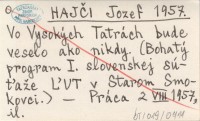 HAJČI Jozef 1957.
Vo Vysokých Tatrách bude
veselo ako nikdy. (Bohatý
program I. slovenskej sú-
ťaže ĽUT v Starom Smo-
kovci.) — Práca 2 VIII. 1957,
il.